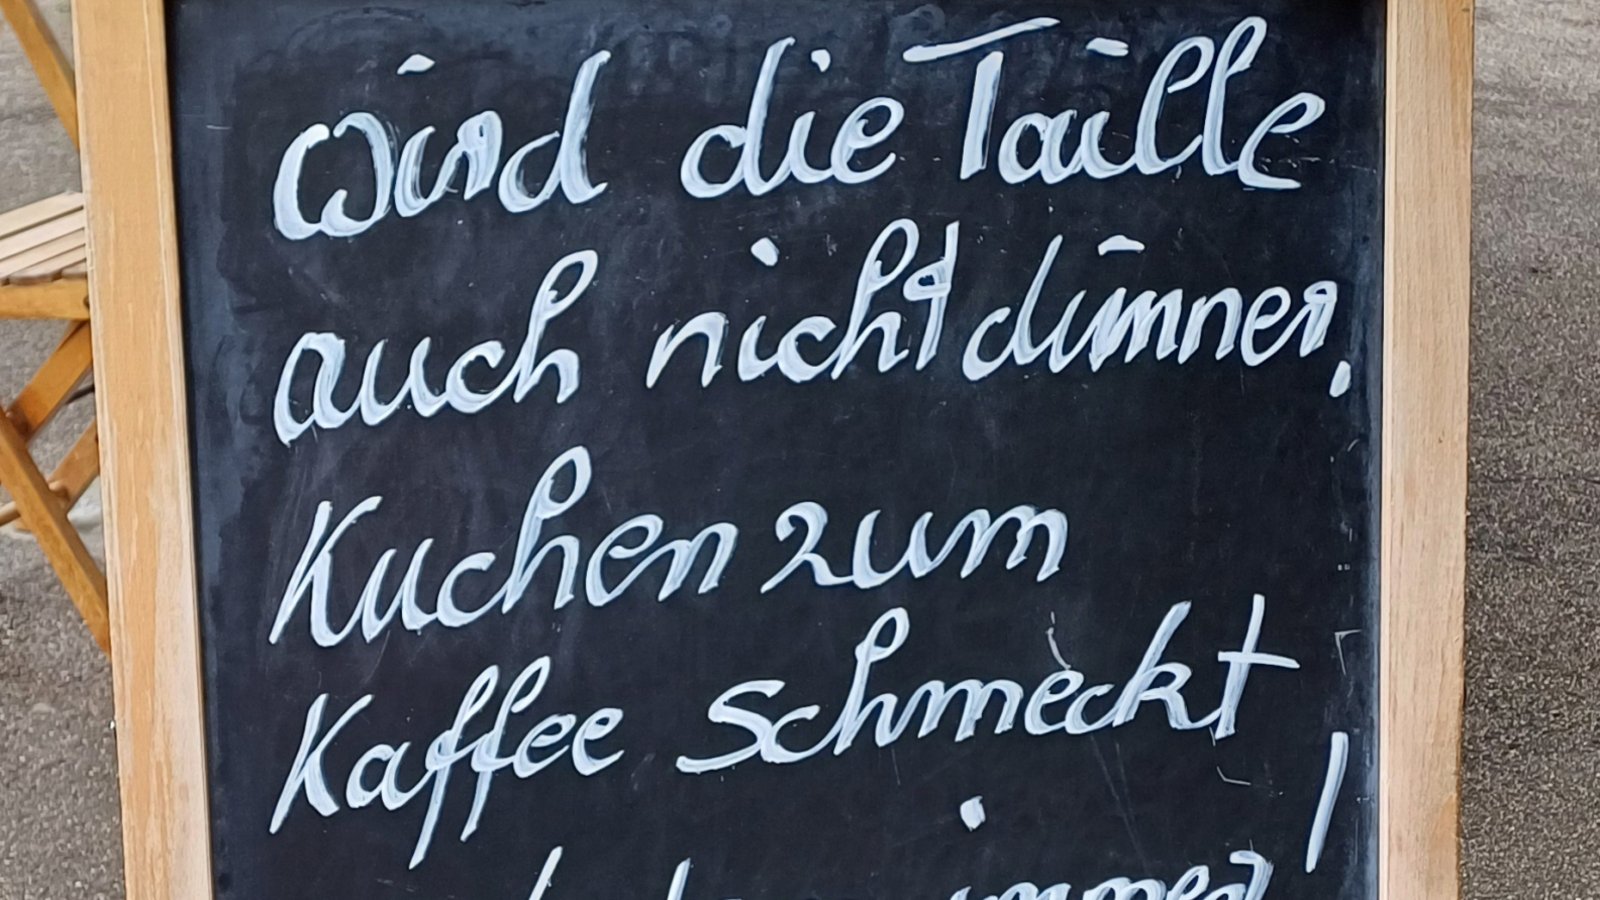 wird die Taille
auch nicht dünner.
Kuchen zum
Kaffee schmeckt
immer!